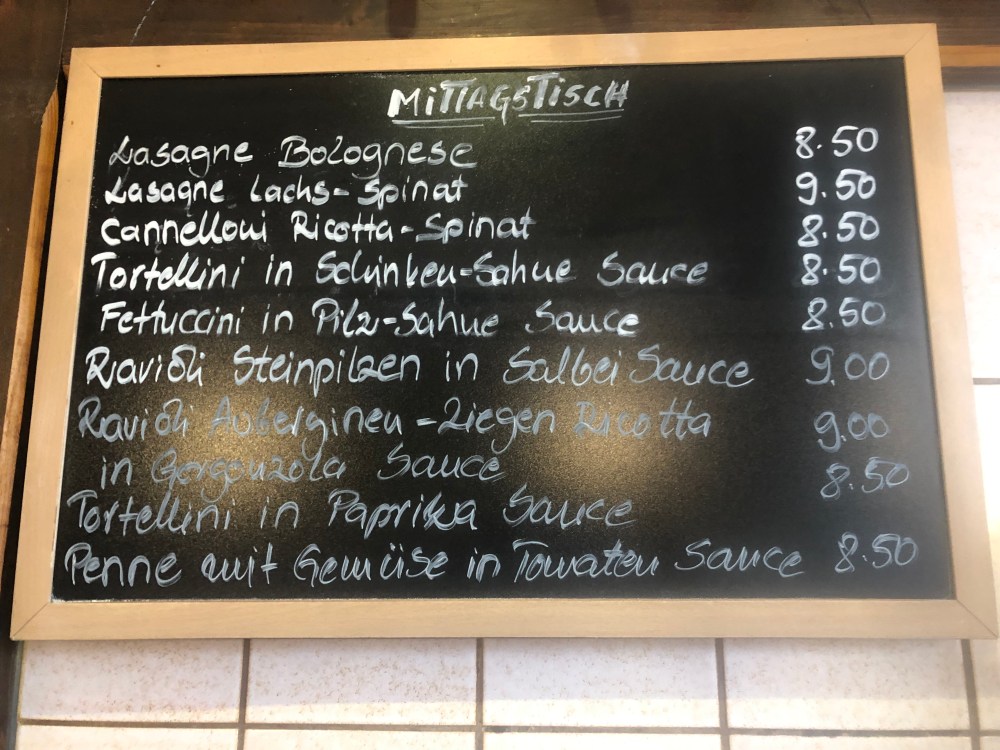 MiTTAGSTISCH
Lasagne Bolognese 8.50
Lasagne Lachs-Spinat 9.50
Cannelloni Ricotta-Spinat 8.50
Tortellini in Schinken-Sahne Sauce 8.50
Fettuccini in Pilz-Sahne Sauce 8.50
Ravioli Steinpilzen in Salbei Sauce 9.00
Ravioli Auberginen-Ziegen Ricotta 9.00
in Gorgonzola Sauce 8.50
Tortellini in Paprika Sauce
Penne mit Gemüse in Tomaten Sauce 8.50